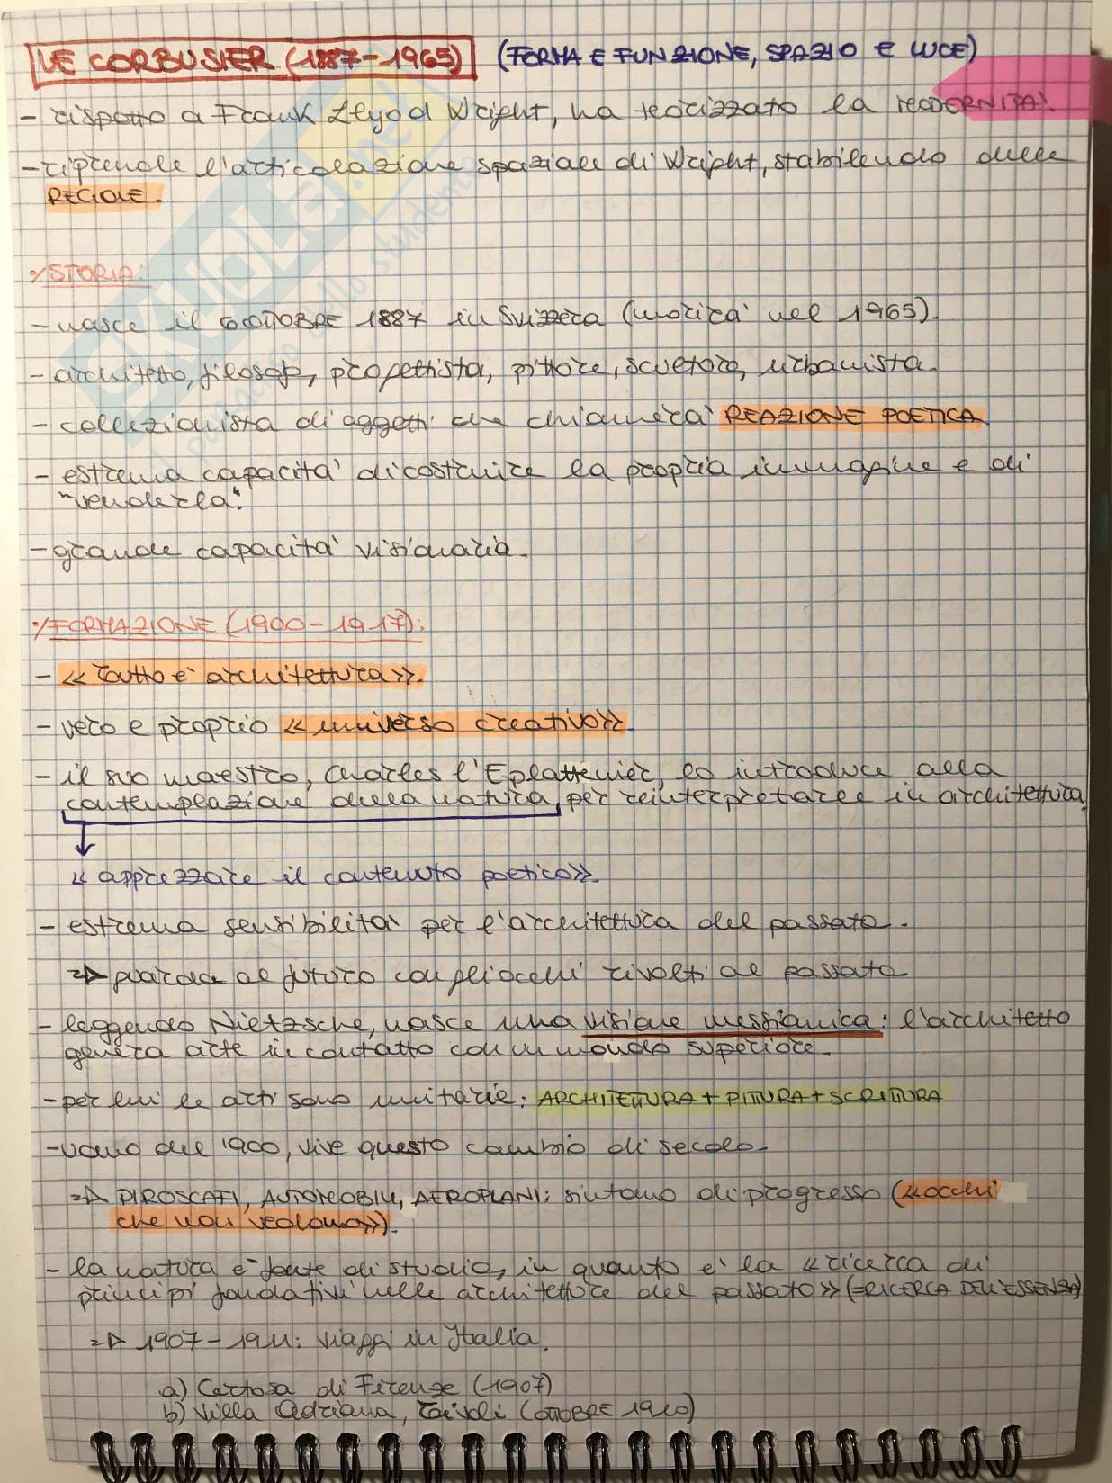 LE CORBUSIER (1887-1965) (FORMA E FUNZIONE, SPAZIO E LUCE)
- rispetto a Frank Lloyd Wright, ha teorizzato la MODERNITA'.
- riprende l'articolazione spaziale di Wright, stabilendo delle
REGOLE.
% STORIA:
- nasce il 6 OTTOBRE 1887 in Svizzera (morirà nel 1965)
- architetto, filosofo, progettista, pittore, scultore, urbanista.
- collezionista di oggetti che chiamerà REAZIONE POETICA
- estrema capacità di costruire la propria immagine e di
"venderla".
- grande capacità visionaria.
% FORMAZIONE (1900-1917):
- «Tutto è architettura».
- vero e proprio «universo creativo».
- il suo maestro, Charles l'Eplattenier, lo introduce alla
contemplazione della natura, per reinterpretarle in architettura
« apprezzare il contenuto poetico».
- estrema sensibilità per l'architettura del passato.
=> guarda al futuro con gli occhi rivolti al passato
- leggendo Nietzsche, nasce una visione messianica: l'architetto
genera arte in contatto con un mondo superiore.
- per lui le arti sono unitarie: ARCHITETTURA + PITTURA + SCRITTURA
- uomo del '900, vive questo cambio di secolo.
=> PIROSCAFI, AUTOMOBILI, AEROPLANI: sintomo di progresso («occhi
che non vedono»).
- la natura è fonte di studio, in quanto è la «ricerca di
principi fondativi nelle architetture del passato» (=RICERCA DELL'ESSENZA)
=> 1907-1911: viaggi in Italia.
a) Certosa di Firenze (1907)
b) Villa Adriana, Tivoli (OTTOBRE 1910)